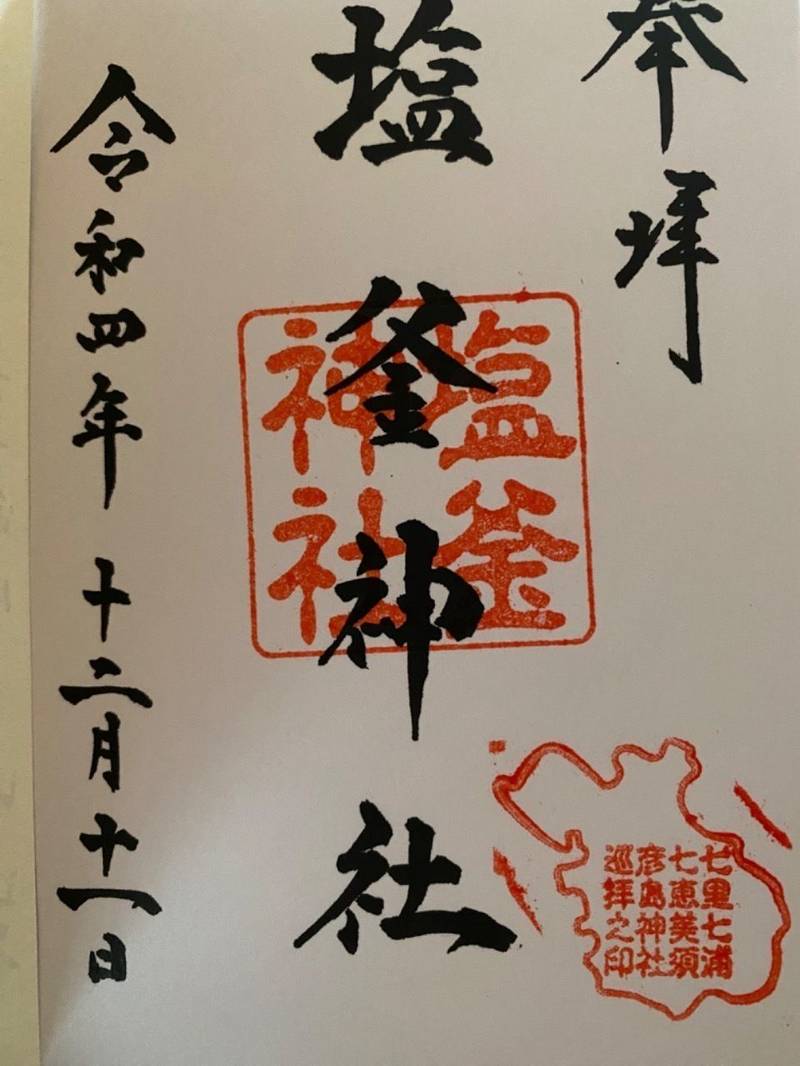 奉拝
塩釜神社
塩釜
神社
令和四年 十二月 十一日
七里七浦
七恵美須
彦島神社
巡拝之印